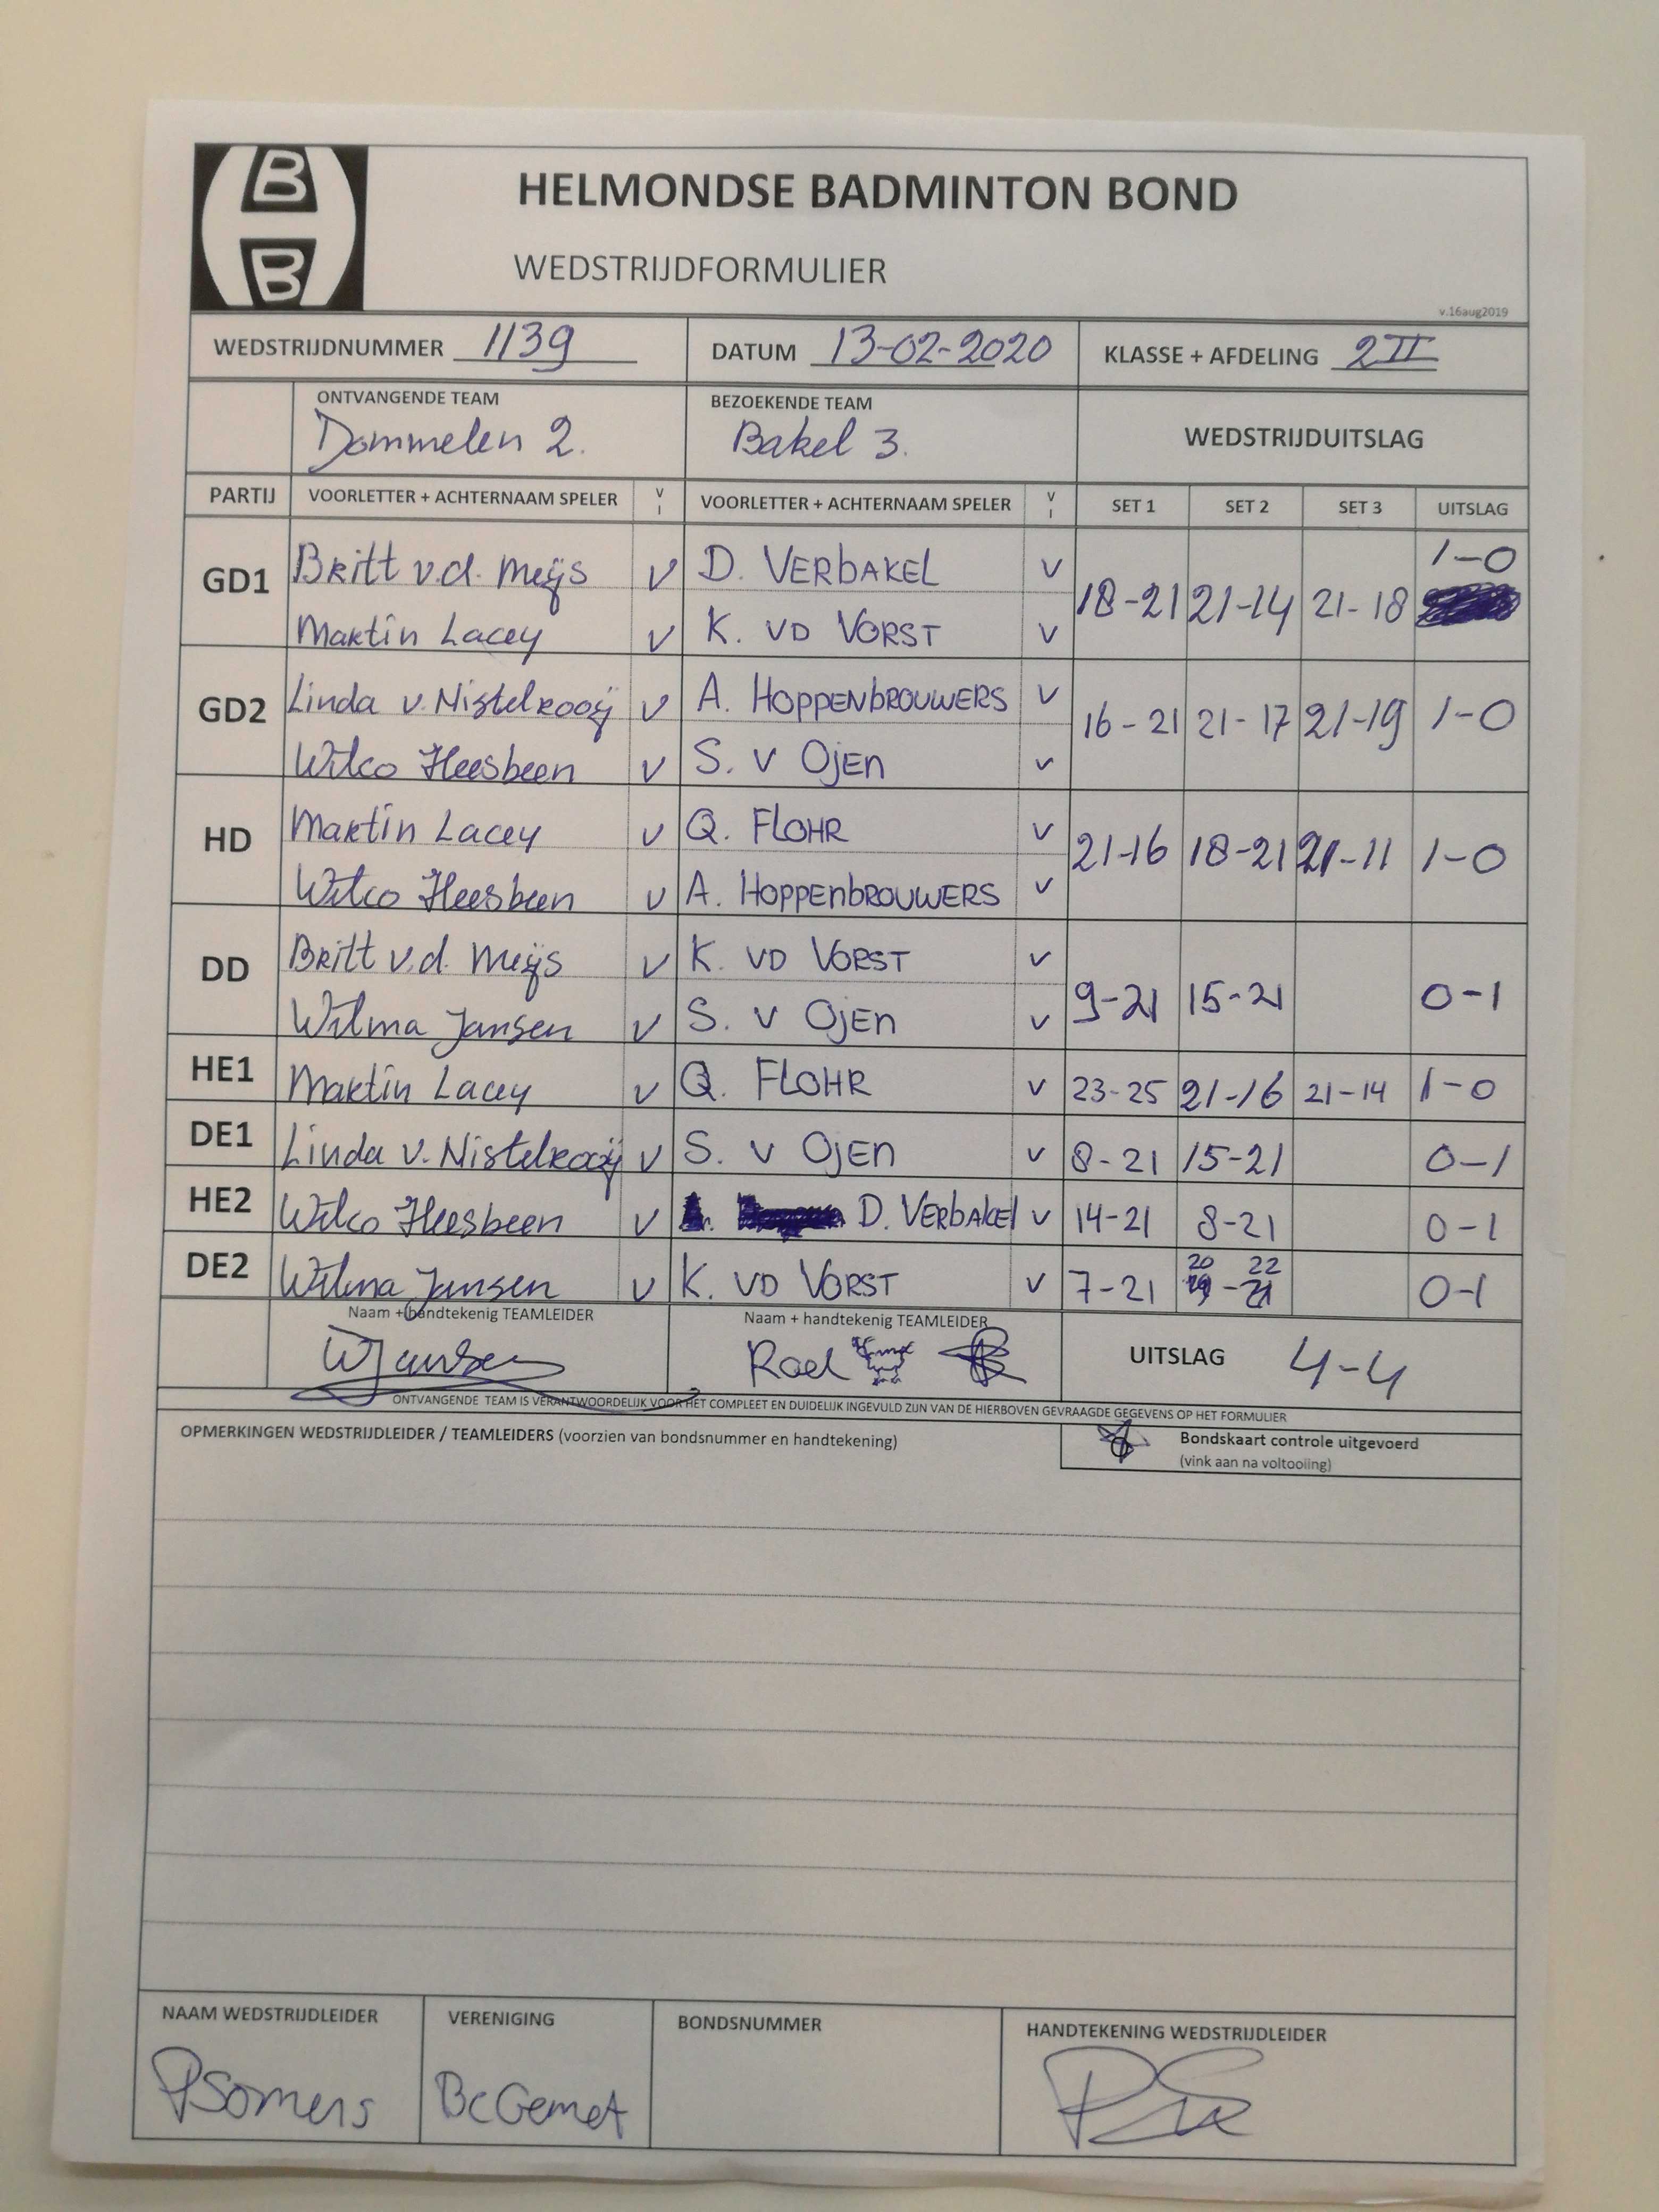 B
B
HELMONDSE BADMINTON BOND
WEDSTRIJDFORMULIER
v.16aug2019
WEDSTRIJDNUMMER 1139 DATUM 13-02-2020 KLASSE + AFDELING 2 II
ONTVANGENDE TEAM BEZOEKENDE TEAM
Dommelen 2. Bakel 3. WEDSTRIJDUITSLAG
PARTIJ VOORLETTER + ACHTERNAAM SPELER V I VOORLETTER + ACHTERNAAM SPELER V I SET 1 SET 2 SET 3 UITSLAG
GD1 Britt v.d. Meijs V D. VERbAKEL V 18-21 21-14 21-18 1-0
Martin Lacey V K. VD VORST V
GD2 Linda v. Nistelrooij V A. HOPPENbROUWERS V 16-21 21-17 21-19 1-0
Wilco Heesbeen V S. V OjEn V
HD Martin Lacey V Q. FLOHR V 21-16 18-21 21-11 1-0
Wilco Heesbeen V A. HOPPEnbROUWERS V
DD Britt v.d. Meijs V K. VD VORST V 9-21 15-21 0-1
Wilma Jansen V S. V OjEn V
HE1 Martin Lacey V Q. FLOHR V 23-25 21-16 21-14 1-0
DE1 Linda v. Nistelrooij V S. V OjEn V 8-21 15-21 0-1
HE2 Wilco Heesbeen V D. VERbAkEl V 14-21 8-21 0-1
DE2 Wilma Jansen V K. VD VORST V 7-21 20 22 0-1
19-21
Naam + handtekenig TEAMLEIDER Naam + handtekenig TEAMLEIDER
WJansen Roel UITSLAG 4-4
ONTVANGENDE TEAM IS VERANTWOORDELIJK VOOR HET COMPLEET EN DUIDELIJK INGEVULD ZIJN VAN DE HIERBOVEN GEVRAAGDE GEGEVENS OP HET FORMULIER
OPMERKINGEN WEDSTRIJDLEIDER / TEAMLEIDERS (voorzien van bondsnummer en handtekening)
Bondskaart controle uitgevoerd
(vink aan na voltooiing)
NAAM WEDSTRIJDLEIDER VERENIGING BONDSNUMMER HANDTEKENING WEDSTRIJDLEIDER
PSomers BcGemet